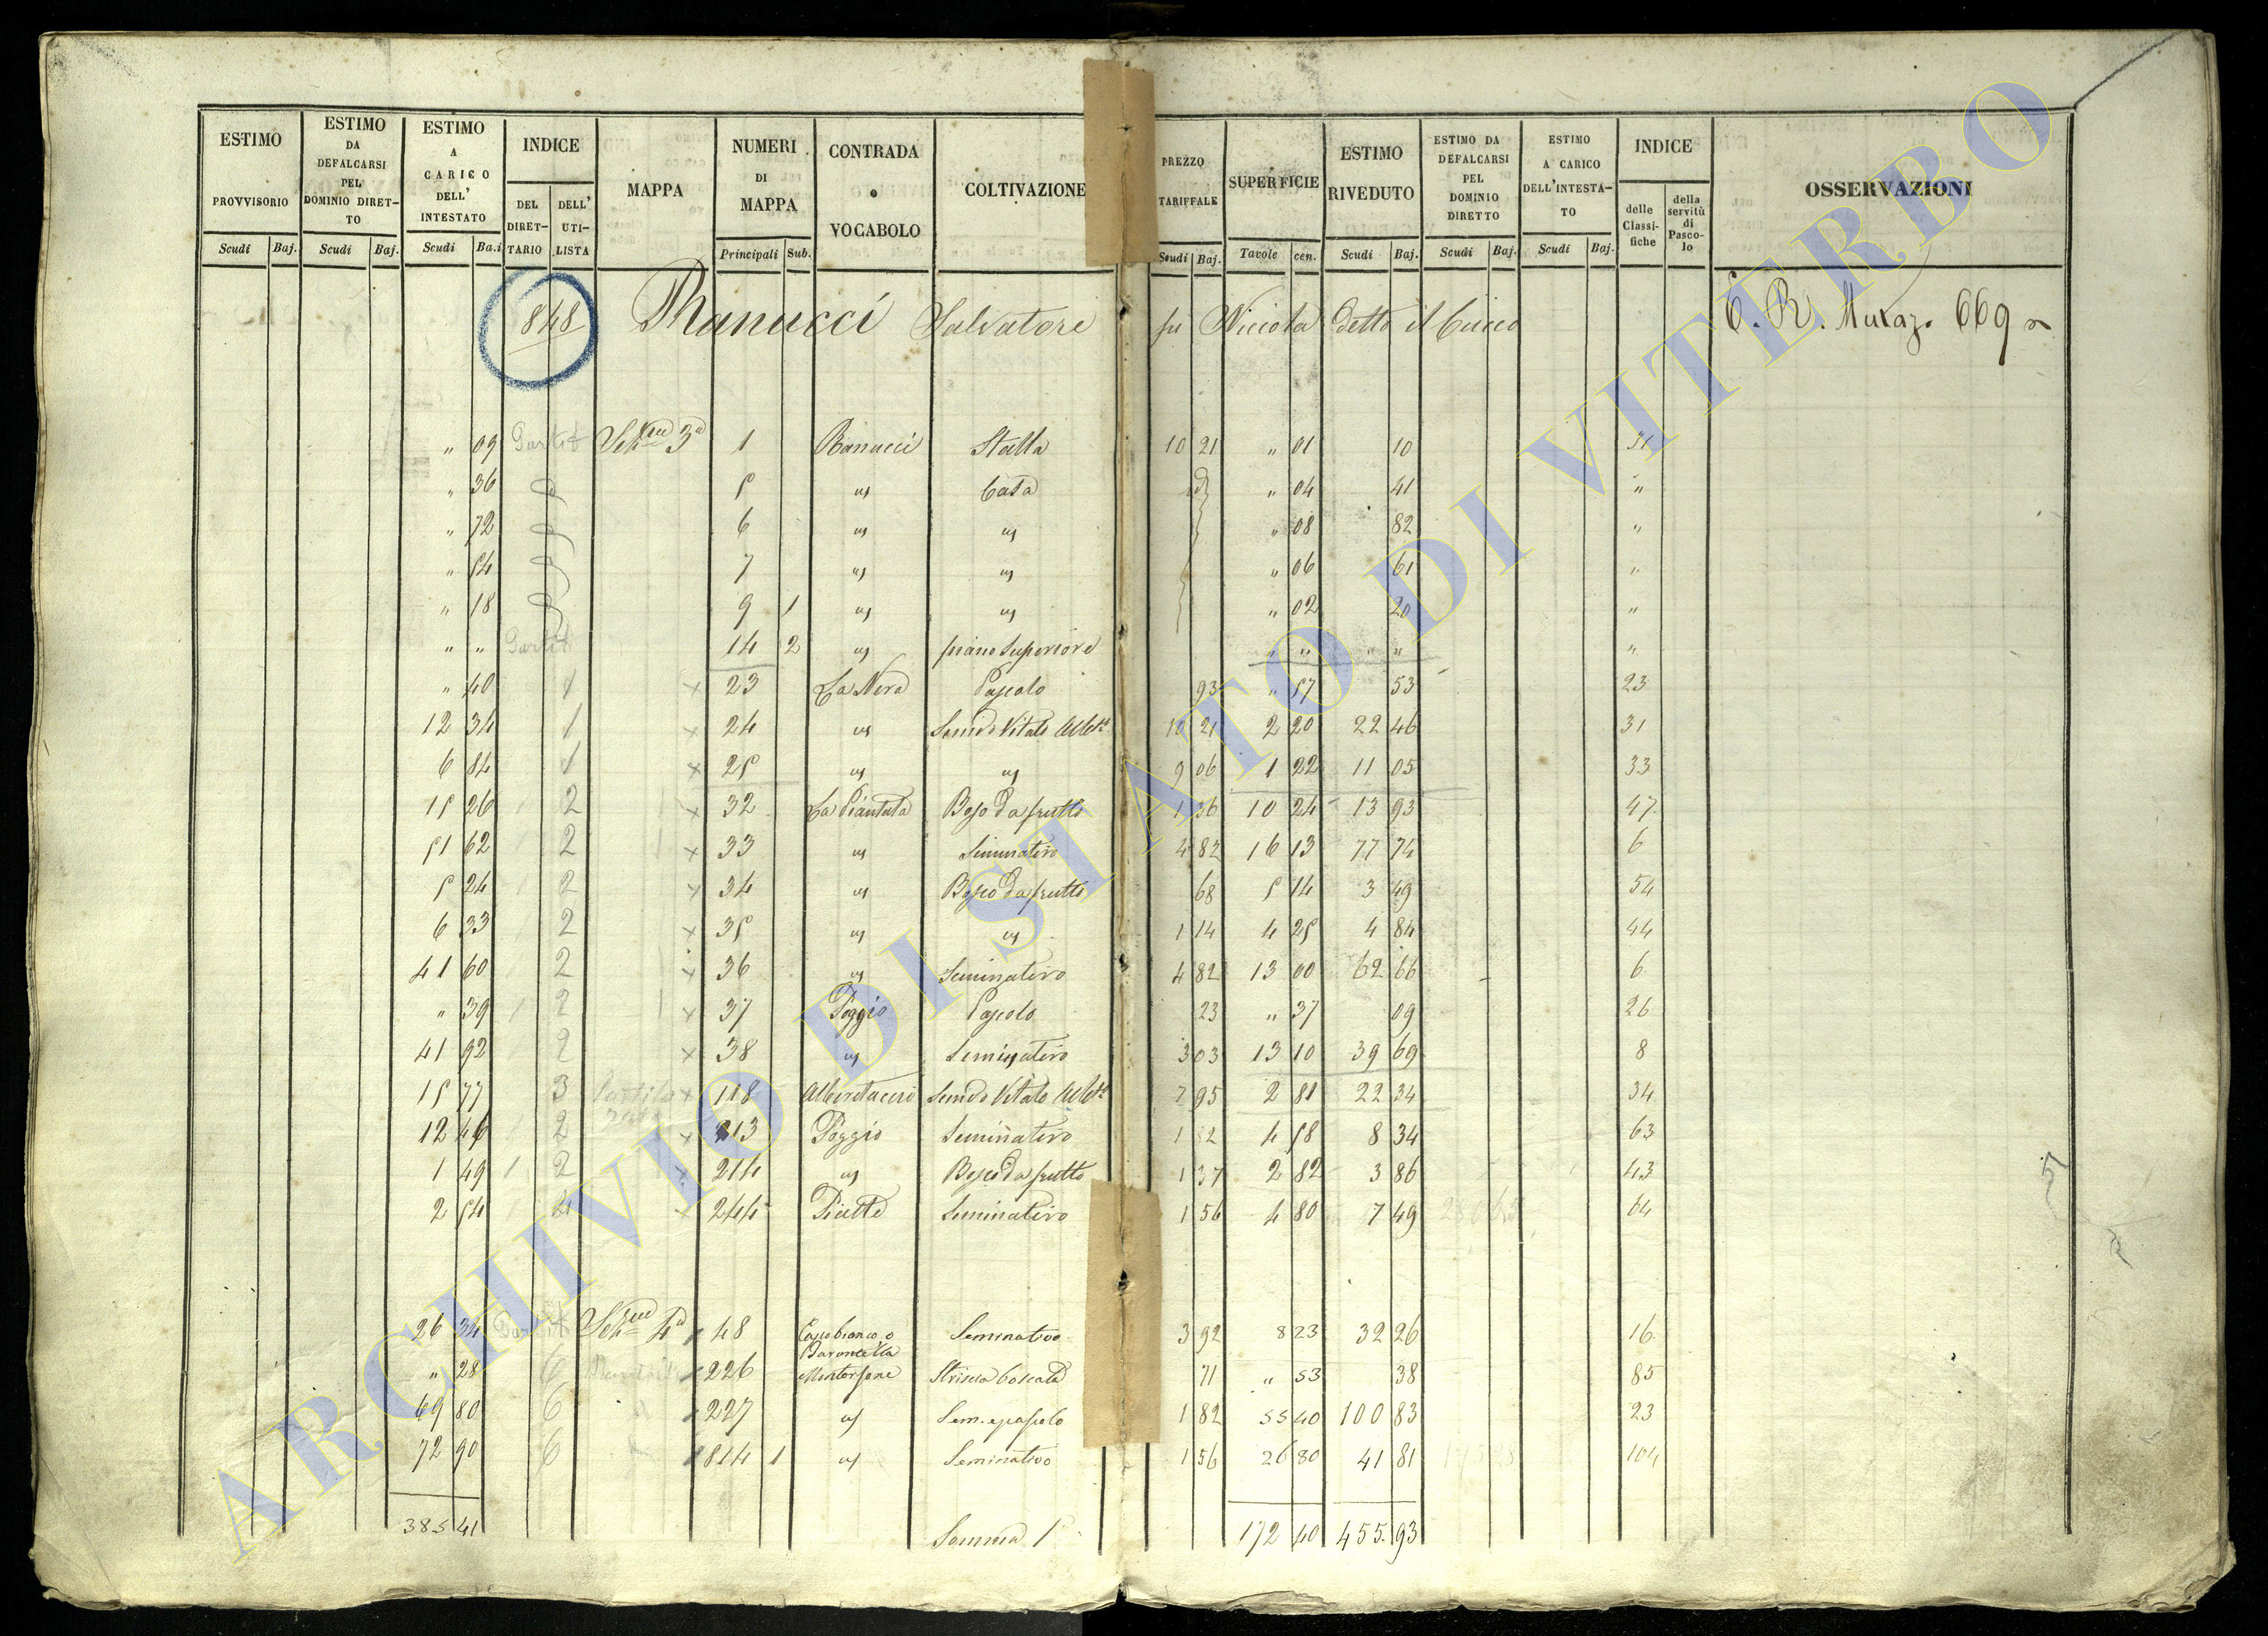 ESTIMO PROVVISORIO Scudi Baj. ESTIMO DA DEFALCARSI PEL DOMINIO DIRET- TO Scudi Baj. ESTIMO A CARICO DELL' INTESTATO Scudi Ba.i INDICE DEL DIRET- TARIO DELL' UTI- LISTA MAPPA NUMERI DI MAPPA Principali Sub. CONTRADA o VOCABOLO COLTIVAZIONE PREZZO TARIFFALE Scudi Baj. SUPERFICIE Tavole cen. ESTIMO RIVEDUTO Scudi Baj. ESTIMO DA DEFALCARSI PEL DOMINIO DIRETTO Scudi Baj. ESTIMO A CARICO DELL'INTESTA- TO Scudi Baj. INDICE delle Classi- fiche della servitù di Pasco- lo OSSERVAZIONI
848 Ranucci Salvatore fu Niccola detto il Cuicco C. R. 669
" 09 Partit Sez.ne 3a 1 Ranucci Stalla 10 21 " 01 10 31
" 36 5 " Casa id " 04 41 "
" 72 6 " " " 08 82 "
" 54 7 " " " 06 61 "
" 18 9 1 " " " 02 20 "
" " Partit 14 2 " piano superiore " " " " "
" 40 1 x 23 La Nera Pascolo 93 " 57 53 23
12 34 1 x 24 " Semvo Vitato Albto 10 21 2 20 22 46 31
6 84 1 x 25 " " 9 06 1 22 11 05 33
15 26 2 x 32 La Piantata Bosco da frutto 1 36 10 24 13 93 47
51 62 2 x 33 " Seminativo 4 82 16 13 77 74 6
5 24 2 x 34 " Bosco da frutto 68 5 14 3 49 54
6 33 2 x 35 " " 1 14 4 25 4 84 44
41 60 2 x 36 " Seminativo 4 82 13 00 62 66 6
" 39 2 x 37 Poggio Pascolo 23 " 37 09 26
41 92 2 x 38 " Seminativo 3 03 13 10 39 69 8
15 77 3 x 118 Alberetaccio Semvo Vitato Albto 7 95 2 81 22 34 34
12 46 2 x 213 Poggio Seminativo 1 82 4 58 8 34 63
1 49 2 x 214 " Bosco da frutto 1 37 2 82 3 86 43
2 54 4 x 244 Piatte Seminativo 1 56 4 80 7 49 64
26 34 Partit Sez.ne 4a 48 Capobianco o Baroncella Seminativo 3 92 8 23 32 26 16
" 28 6 226 Montorfane Striscia boscata 71 " 53 38 85
69 80 6 227 " Sem. e pascolo 1 82 55 40 100 83 23
72 90 6 814 1 " Seminativo 1 56 26 80 41 81 104
385 41 Somma 172 40 455.93
ARCHIVIO DI STATO DI VITERBO